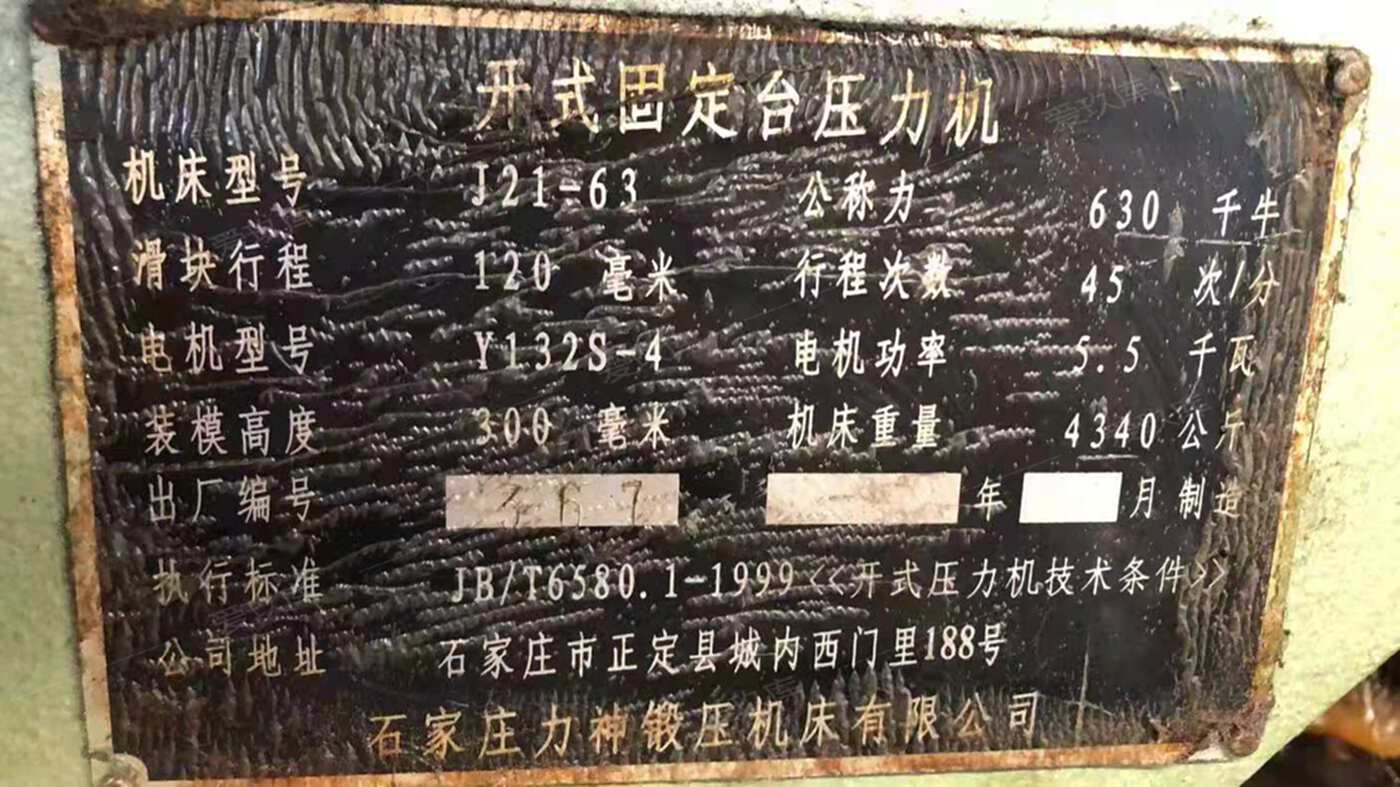 开式固定台压力机
机床型号 J21-63 公称力 630 千牛
滑块行程 120 毫米 行程次数 45 次/分
电机型号 Y132S-4 电机功率 5.5 千瓦
装模高度 300 毫米 机床重量 4340 公斤
出厂编号 367 年 月 制造
执行标准 JB/T6580.1-1999<<开式压力机技术条件>>
公司地址 石家庄市正定县城内西门里188号
石家庄力神锻压机床有限公司